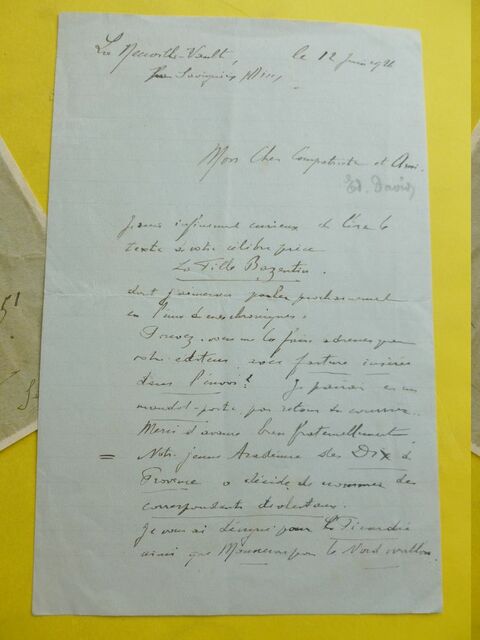 La Neuville-Vault,
le 12 Juin 1924
par Savignies, Oise,
Mon Cher Compatriote et Ami.
Ed. David,
Je suis infiniment curieux de lire le
texte de votre célèbre pièce
La Fille Bazentin.
dont j'aimerais parler prochainement
en l'une de mes chroniques.
Pouvez-vous me la faire adresser par
votre éditeur avec facture insérée
dans l'envoi? Je paierai en un
mandat-poste, par retour du courrier.
Merci d'avance bien fraternellement.
= Notre jeune Académie des Dix de
Provence a décidé de nommer des
correspondants dialectaux.
Je vous ai désigné pour la Picardie
ainsi que Mousseron pour le Nord wallon.
51